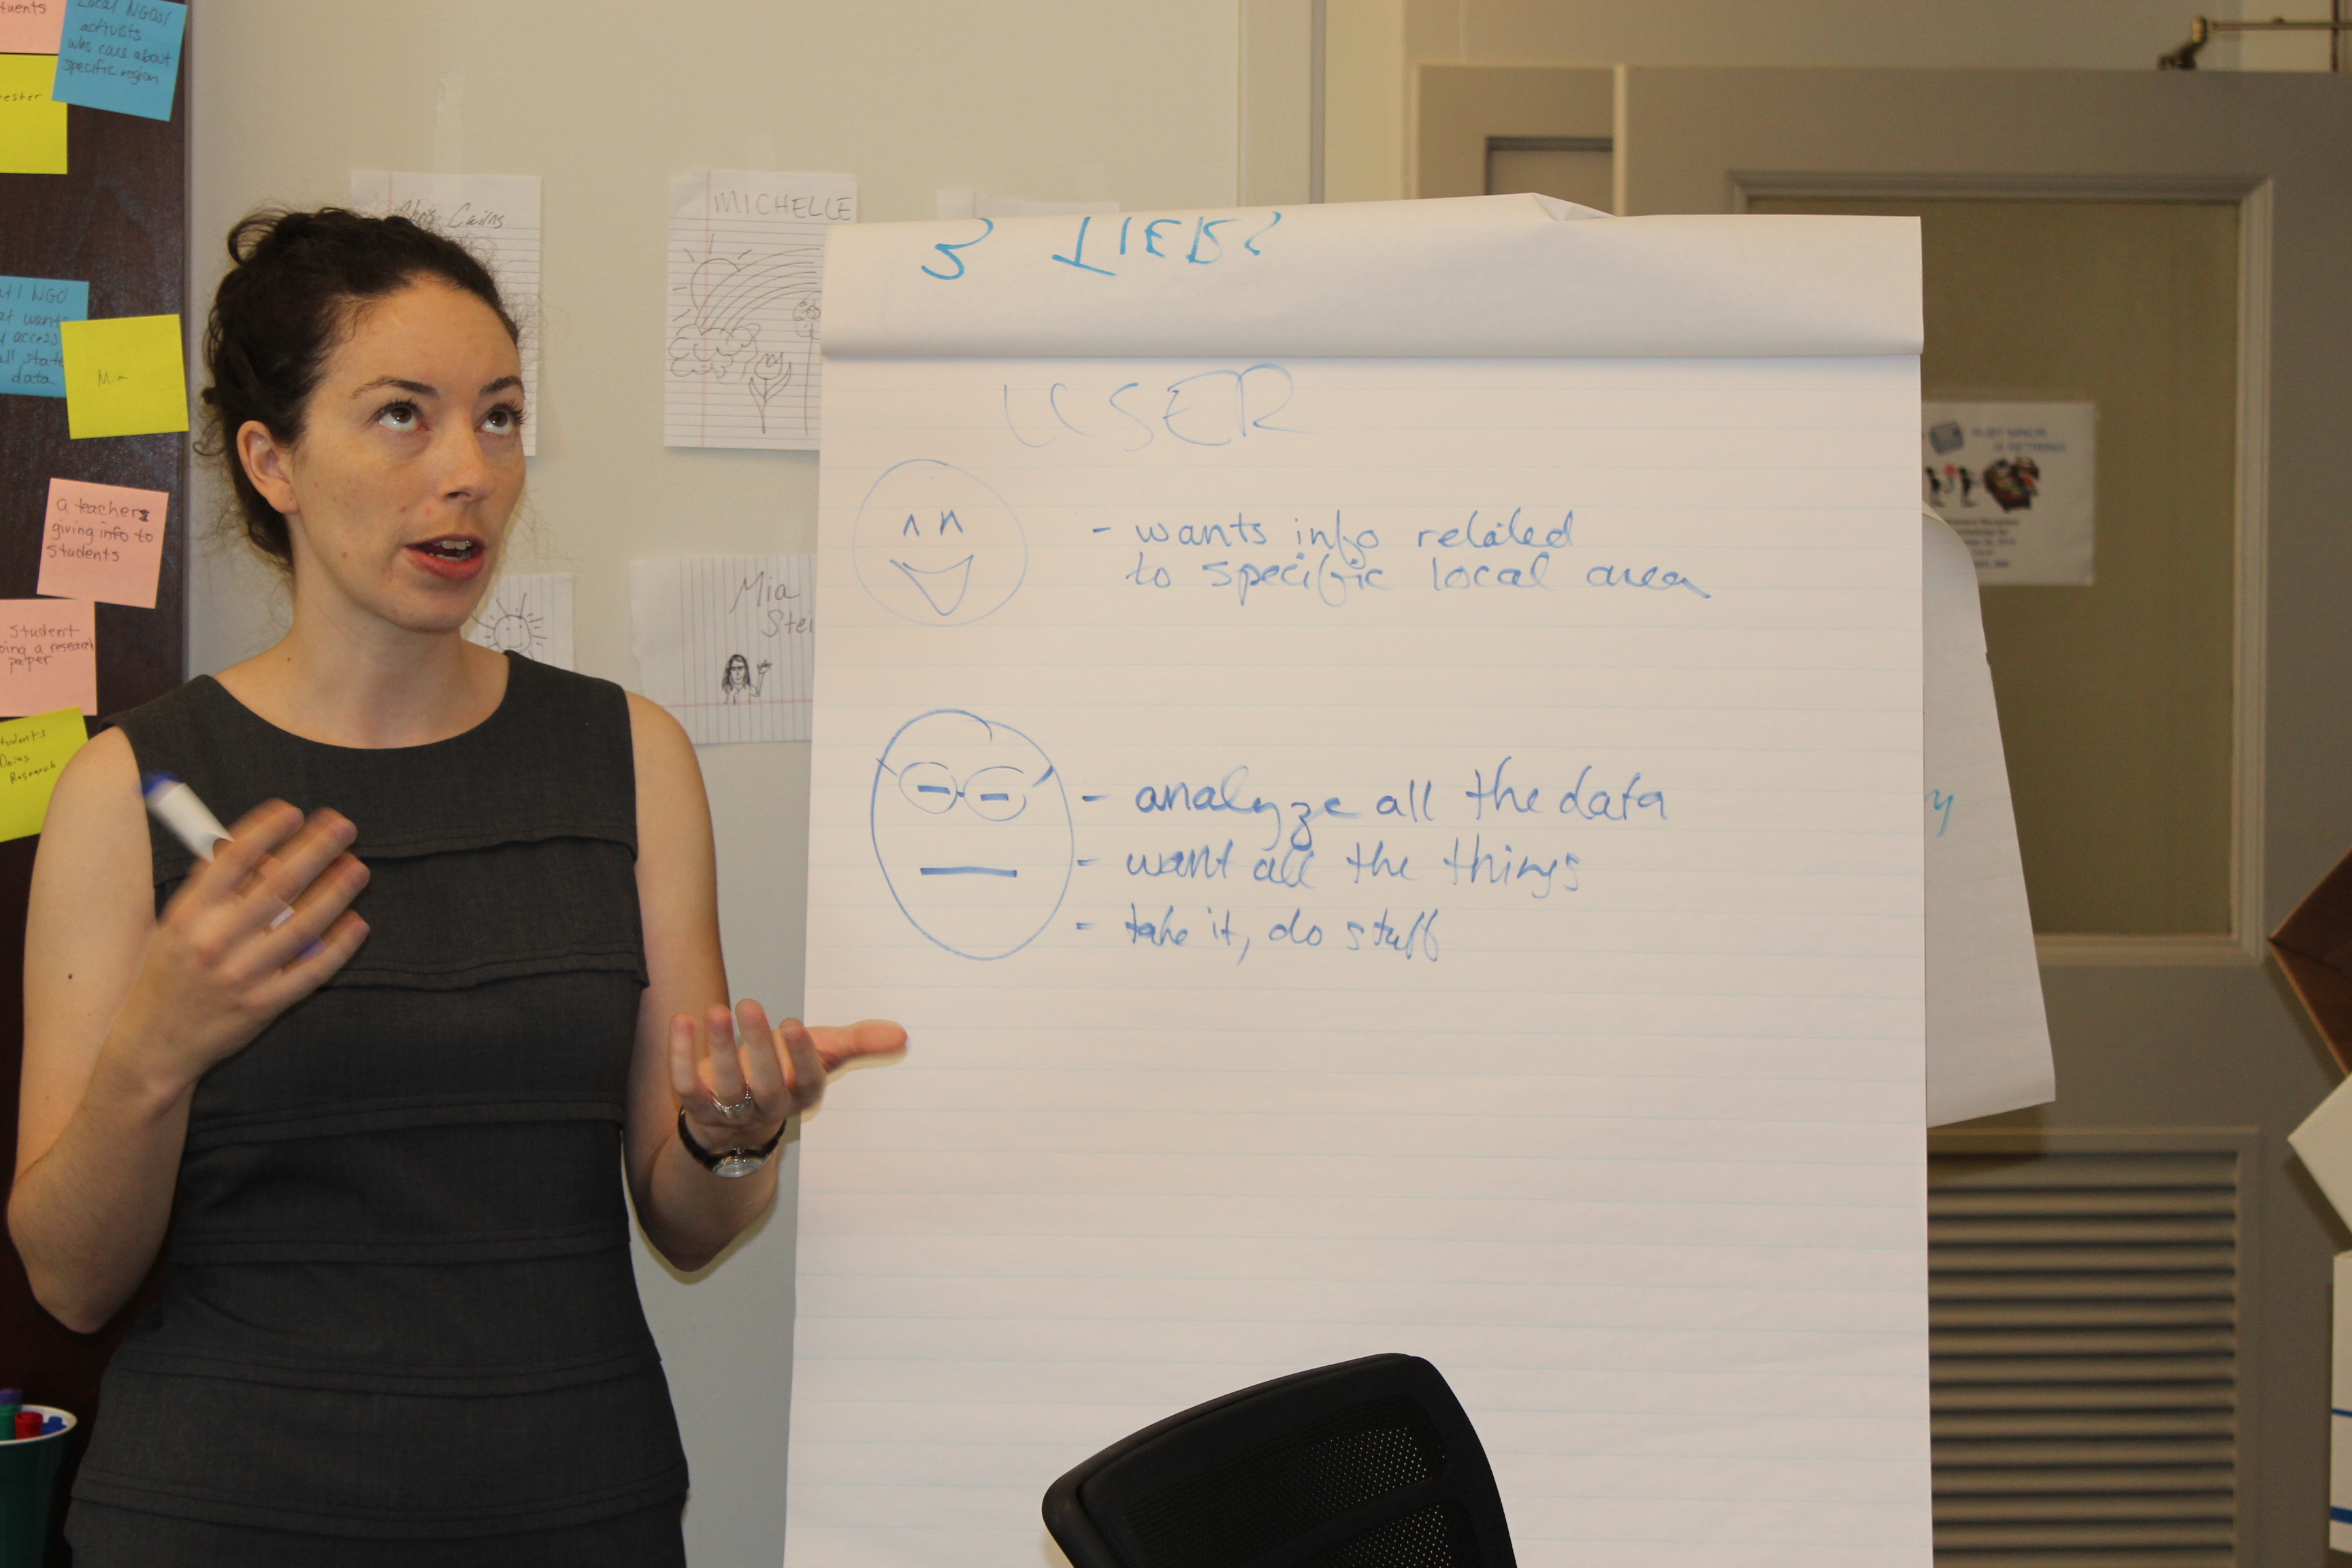 tuents
Local NGOs/
activists
who care about
specific region
ester
NGO
at wants
y access
all state
data
Mia
a teacher
giving info to
students
Student
oing a research
paper
tudents
Doing
Research
Chris Cairns
MICHELLE
Mia
Stei
3 TIER?
USER
- wants info related
to specific local area
- analyze all the data
- want all the things
- take it, do stuff
y